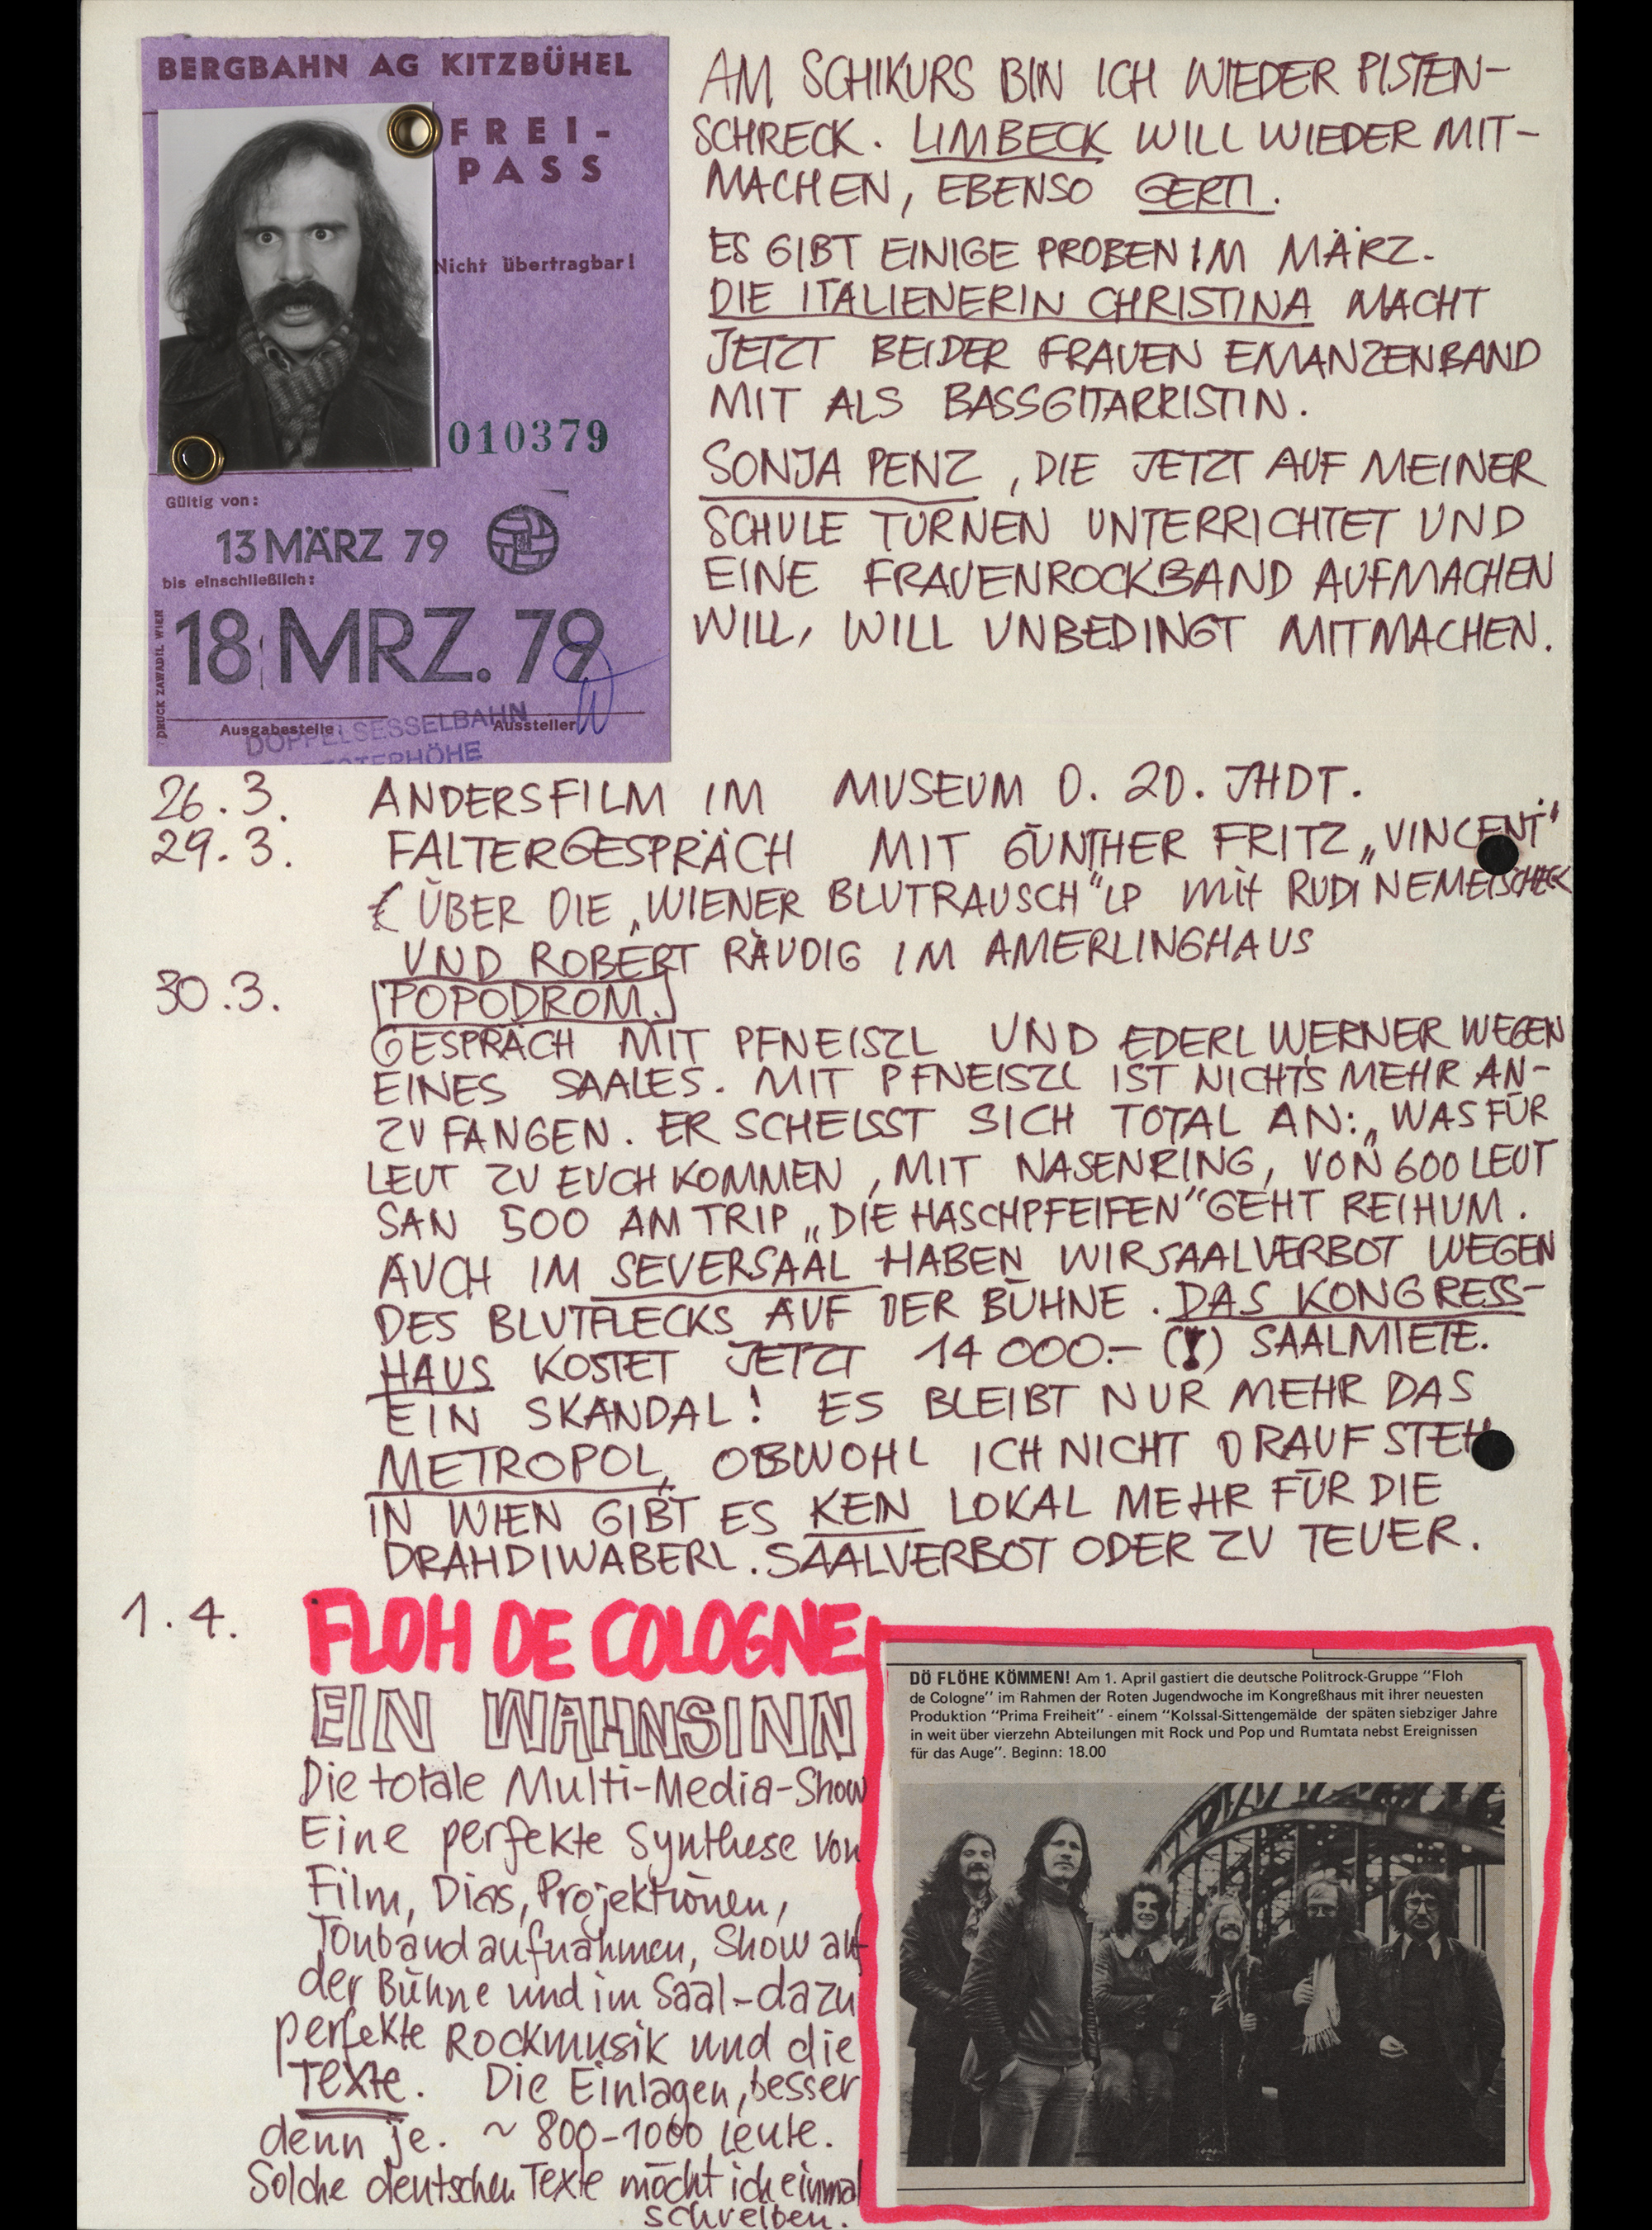 BERGBAHN AG KITZBÜHEL
FREI-
PASS
Nicht übertragbar!
010379
Gültig von:
13 MÄRZ 79
bis einschließlich:
18 MRZ. 79
DRUCK ZAWADIL WIEN
Ausgabestelle
Aussteller
DOPPELSESSELBAHN
AM SCHIKURS BIN ICH WIEDER PISTEN-
SCHRECK. LIMBECK WILL WIEDER MIT-
MACHEN, EBENSO GERTI.
ES GIBT EINIGE PROBEN IM MÄRZ.
DIE ITALIENERIN CHRISTINA MACHT
JETZT BEI DER FRAUEN EMANZENBAND
MIT ALS BASSGITARRISTIN.
SONJA PENZ, DIE JETZT AUF MEINER
SCHULE TURNEN UNTERRICHTET UND
EINE FRAUENROCKBAND AUFMACHEN
WILL, WILL UNBEDINGT MITMACHEN.
26.3. ANDERSFILM IM MUSEUM D. 20. JHDT.
29.3. FALTERGESPRÄCH MIT GÜNTHER FRITZ „VINCENT"
ÜBER DIE „WIENER BLUTRAUSCH" LP mit RUDI NEMETSCHECK
UND ROBERT RÄUDIG IM AMERLINGHAUS
30.3. POPODROM.
GESPRÄCH MIT PFNEISZL UND EDERL WERNER WEGEN
EINES SAALES. MIT PFNEISZL IST NICHTS MEHR AN-
ZUFANGEN. ER SCHEISST SICH TOTAL AN: „WAS FÜR
LEUT ZU EUCH KOMMEN, MIT NASENRING, VON 600 LEUT
SAN 500 AM TRIP „DIE HASCHPFEIFEN" GEHT REIHUM.
AUCH IM SEVERSAAL HABEN WIR SAALVERBOT WEGEN
DES BLUTFLECKS AUF DER BÜHNE. DAS KONGRESS-
HAUS KOSTET JETZT 14 000.- (!) SAALMIETE.
EIN SKANDAL! ES BLEIBT NUR MEHR DAS
METROPOL, OBWOHL ICH NICHT DRAUF STEH
IN WIEN GIBT ES KEIN LOKAL MEHR FÜR DIE
DRAHDIWABERL. SAALVERBOT ODER ZU TEUER.
1.4. FLOH DE COLOGNE
EIN WAHNSINN
Die totale Multi-Media-Show
Eine perfekte Synthese von
Film, Dias, Projektionen,
Tonbandaufnahmen, Show auf
der Bühne und im Saal - dazu
perfekte Rockmusik und die
Texte. Die Einlagen, besser
denn je. ~ 800-1000 Leute.
Solche deutschen Texte möcht ich einmal
schreiben.
DÖ FLÖHE KÖMMEN! Am 1. April gastiert die deutsche Politrock-Gruppe "Floh
de Cologne" im Rahmen der Roten Jugendwoche im Kongreßhaus mit ihrer neuesten
Produktion "Prima Freiheit" - einem "Kolssal-Sittengemälde der späten siebziger Jahre
in weit über vierzehn Abteilungen mit Rock und Pop und Rumtata nebst Ereignissen
für das Auge". Beginn: 18.00